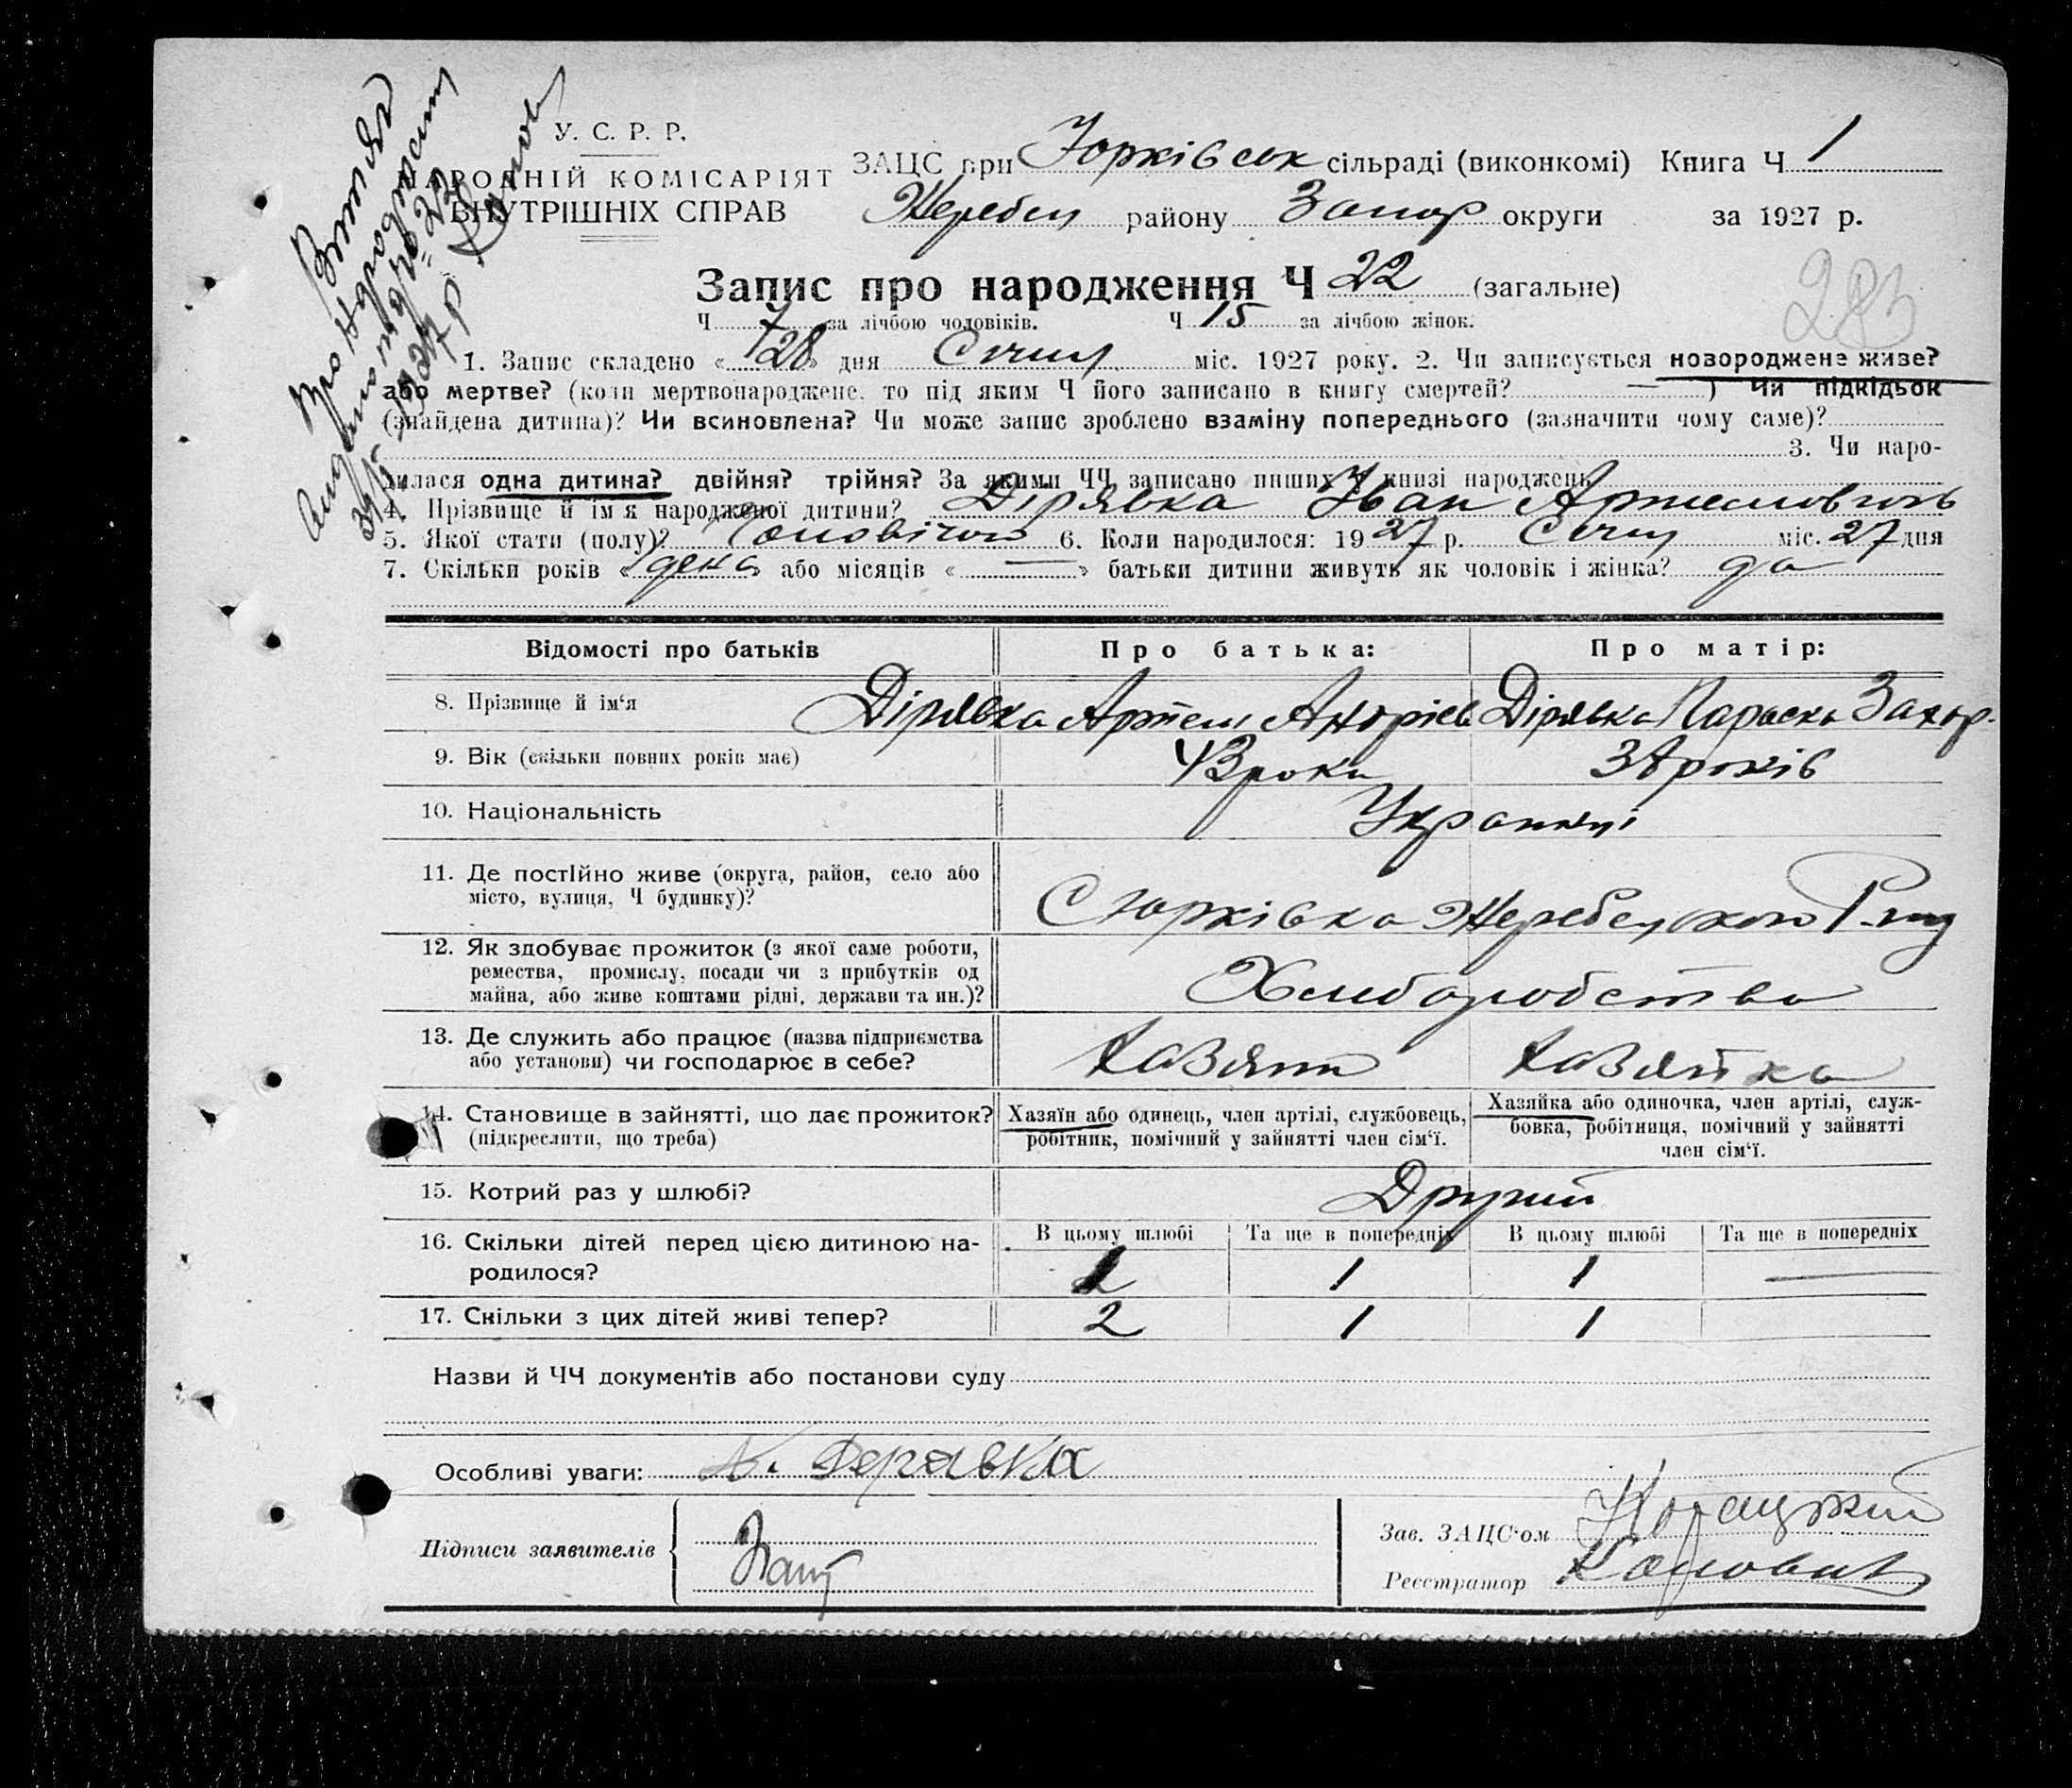 У. С. Р. Р.
НАРОДНІЙ КОМІСАРІЯТ
ВНУТРІШНІХ СПРАВ
ЗАЦС при Юрківськ сільраді (виконкомі) Книга Ч 1
Жеребец району Запор округи за 1927 р.
Витяг
про народження
видано під № 23
Запис про народження Ч 22 (загальне)
283
Ч 7 за лічбою чоловіків. Ч 15 за лічбою жінок.
1. Запис складено « 28 » дня Січня міс. 1927 року. 2. Чи записується новороджене живе?
або мертве? (коли мертвонароджене, то під яким Ч його записано в книгу смертей? — ) Чи підкідьок
(знайдена дитина)? Чи всиновлена? Чи може запис зроблено взаміну попереднього (зазначити чому саме)?
3. Чи наро-
дилася одна дитина? двійня? трійня? За якими ЧЧ записано инших у книзі народжень
4. Прізвище й ім'я народженої дитини? Дірявка Іван Артемович
5. Якої стати (полу)? Чоловічого 6. Коли народилося: 1927 р. Січня міс. 27 дня
7. Скільки років « » або місяців « — » батьки дитини живуть як чоловік і жінка? да
Відомості про батьків Про батька: Про матір:
8. Прізвище й ім'я Дірявка Артем Андріев Дірявка Параска Захар.
9. Вік (скільки повних років має) 43 роки років
10. Національність Українці
11. Де постійно живе (округа, район, село або
місто, вулиця, Ч будинку)? С Юрківка Жеребецького Р-ну
12. Як здобуває прожиток (з якої саме роботи,
ремества, промислу, посади чи з прибутків од
майна, або живе коштами рідні, держави та ин.)? Хлеборобство
13. Де служить або працює (назва підприємства
або установи) чи господарює в себе? Хазяин Хазяйка
14. Становище в зайнятті, що дає прожиток?
(підкреслити, що треба)
Хазяїн або одинець, член артілі, службовець,
робітник, помічний у зайнятті член сім'ї.
Хазяйка або одиночка, член артілі, служ-
бовка, робітниця, помічний у зайнятті
член сім'ї.
15. Котрий раз у шлюбі? Другий
В цьому шлюбі Та ще в попередніх В цьому шлюбі Та ще в попередніх
16. Скільки дітей перед цією дитиною на-
родилося? 2 1 1 —
17. Скільки з цих дітей живі тепер? 2 1 1
Назви й ЧЧ документів або постанови суду
Особливі уваги: А. Дерявка
Підписи заявителів
Зав. ЗАЦС'ом
Реєстратор